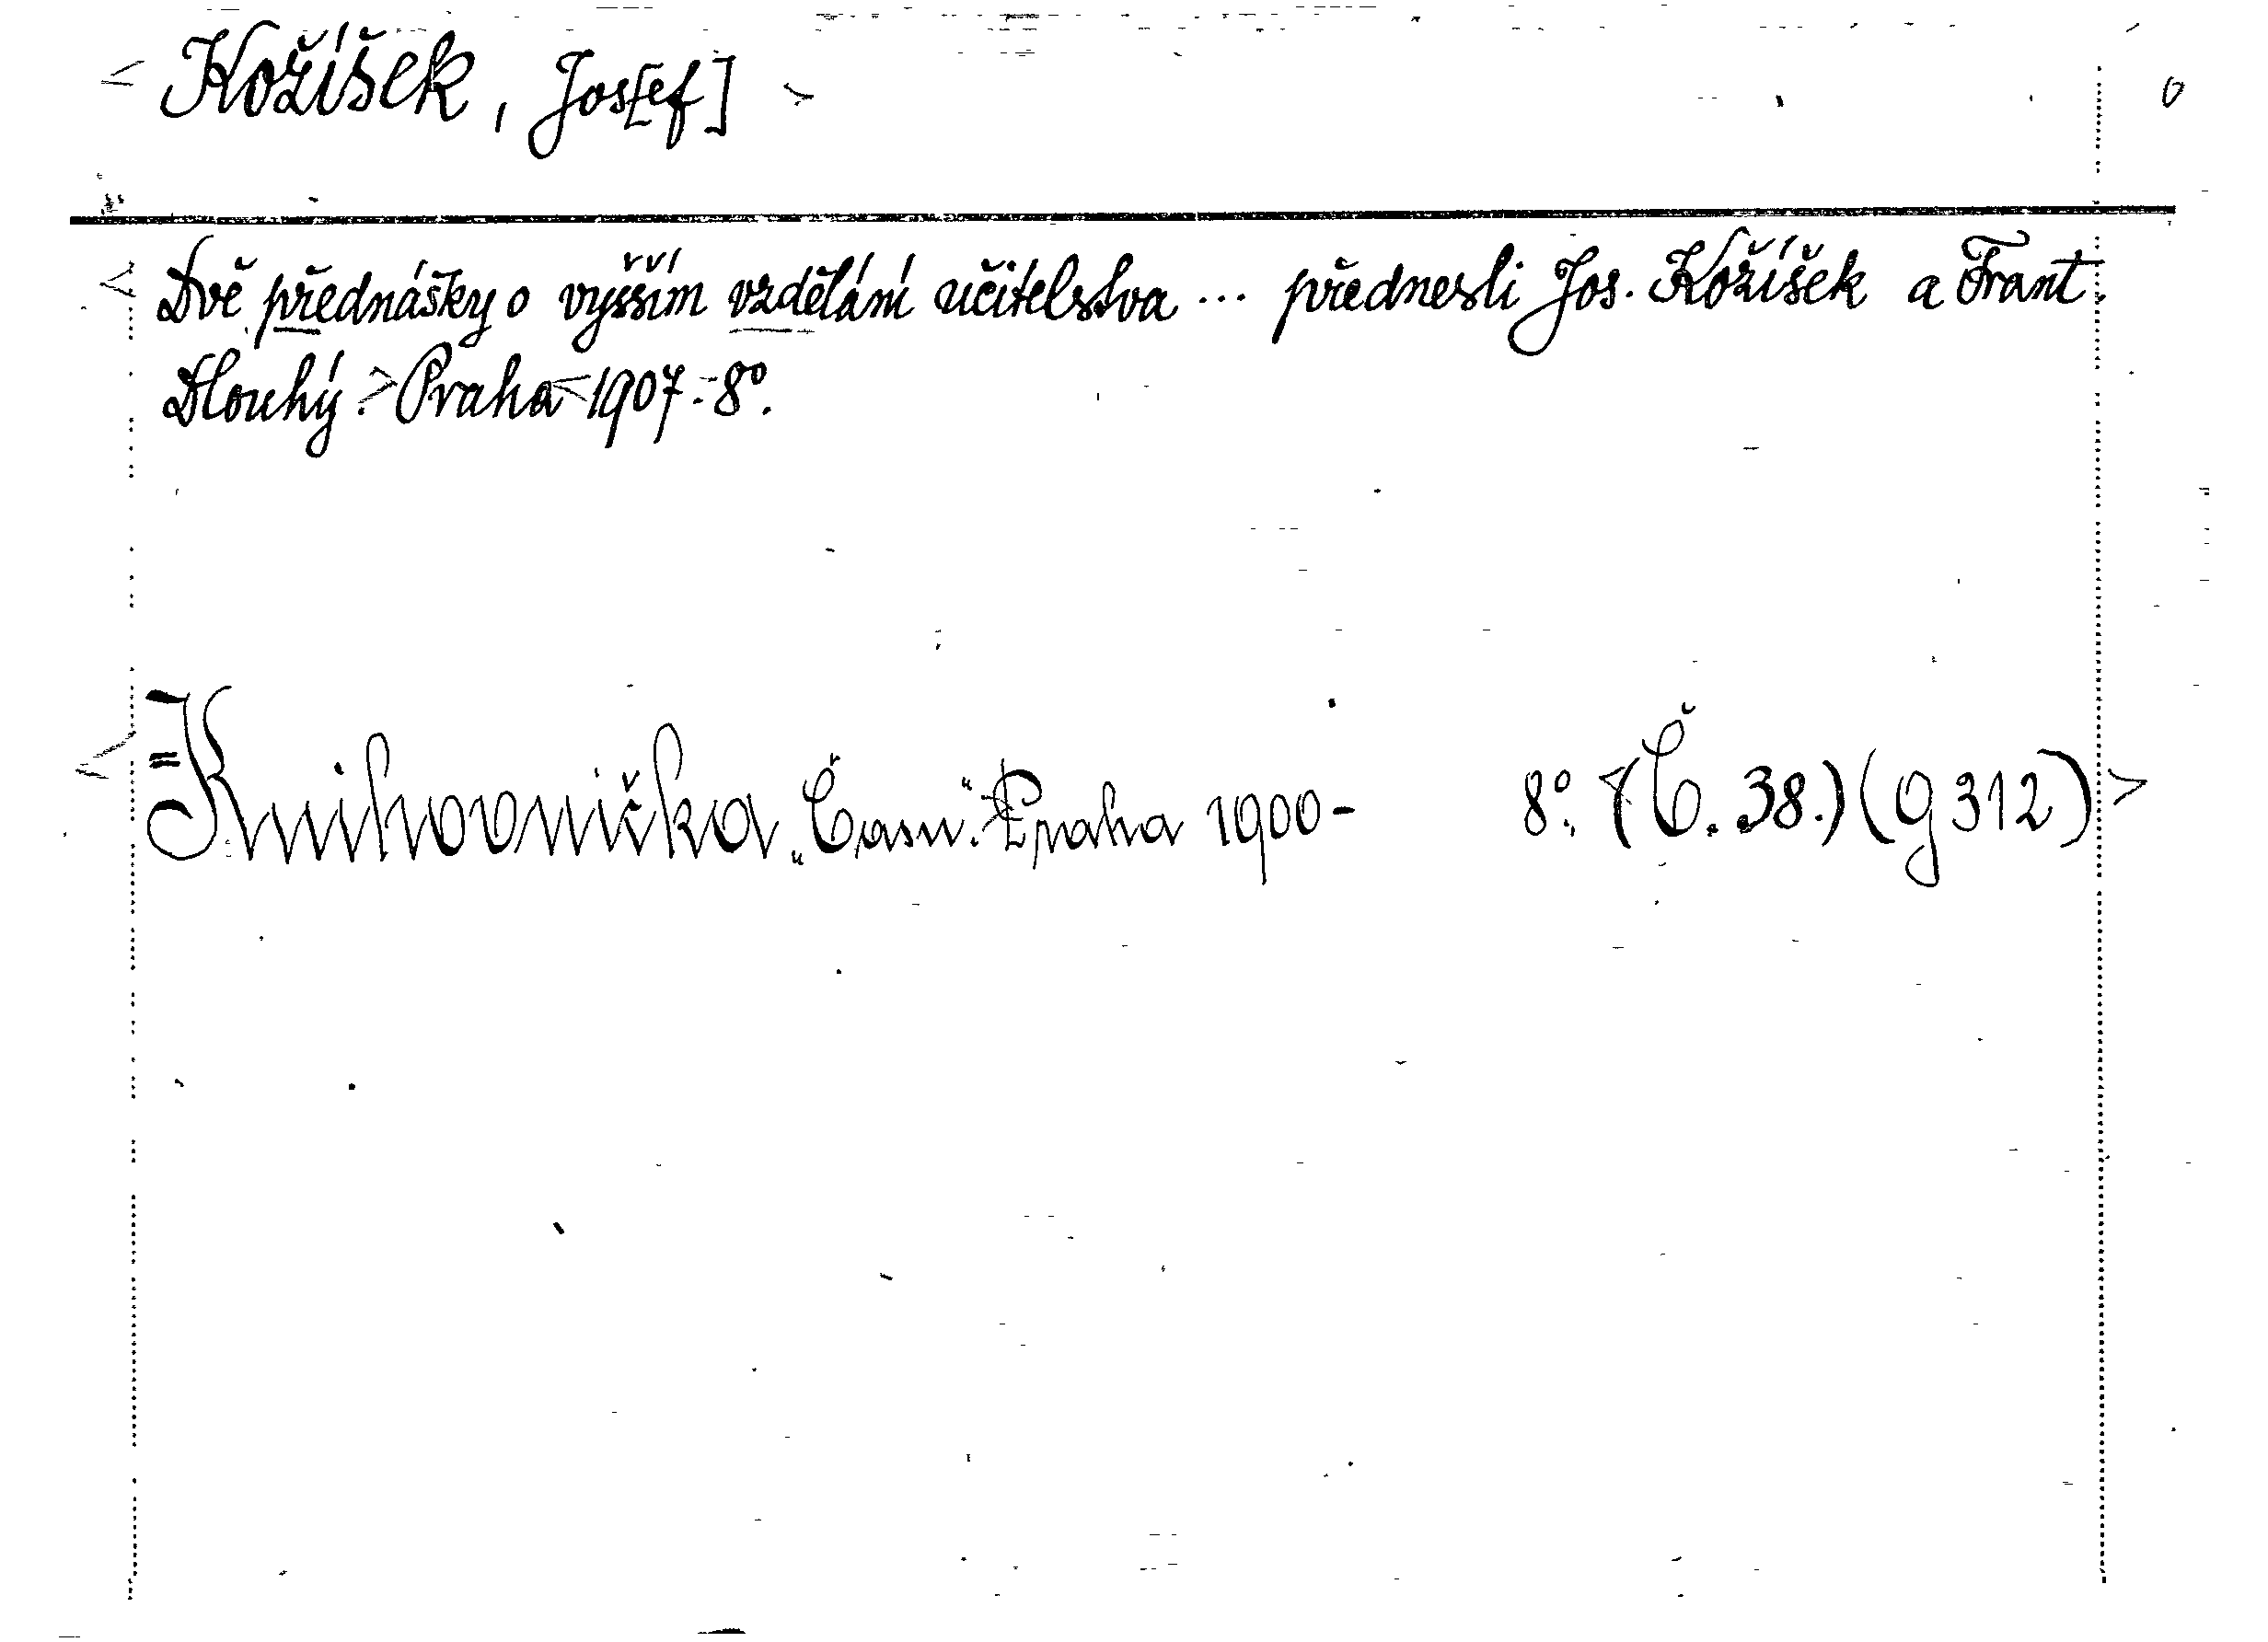 < Kožíšek, Jos[ef] > 0
< Dvě přednášky o vyšším vzdělání učitelstva ... přednesli Jos. Kožíšek a Frant.
Dlouhý. > Praha < 1907. - 8°.
< = Knihovnička „Času“. Praha 1900- 8°. < (Č. 38.) (g 312) >